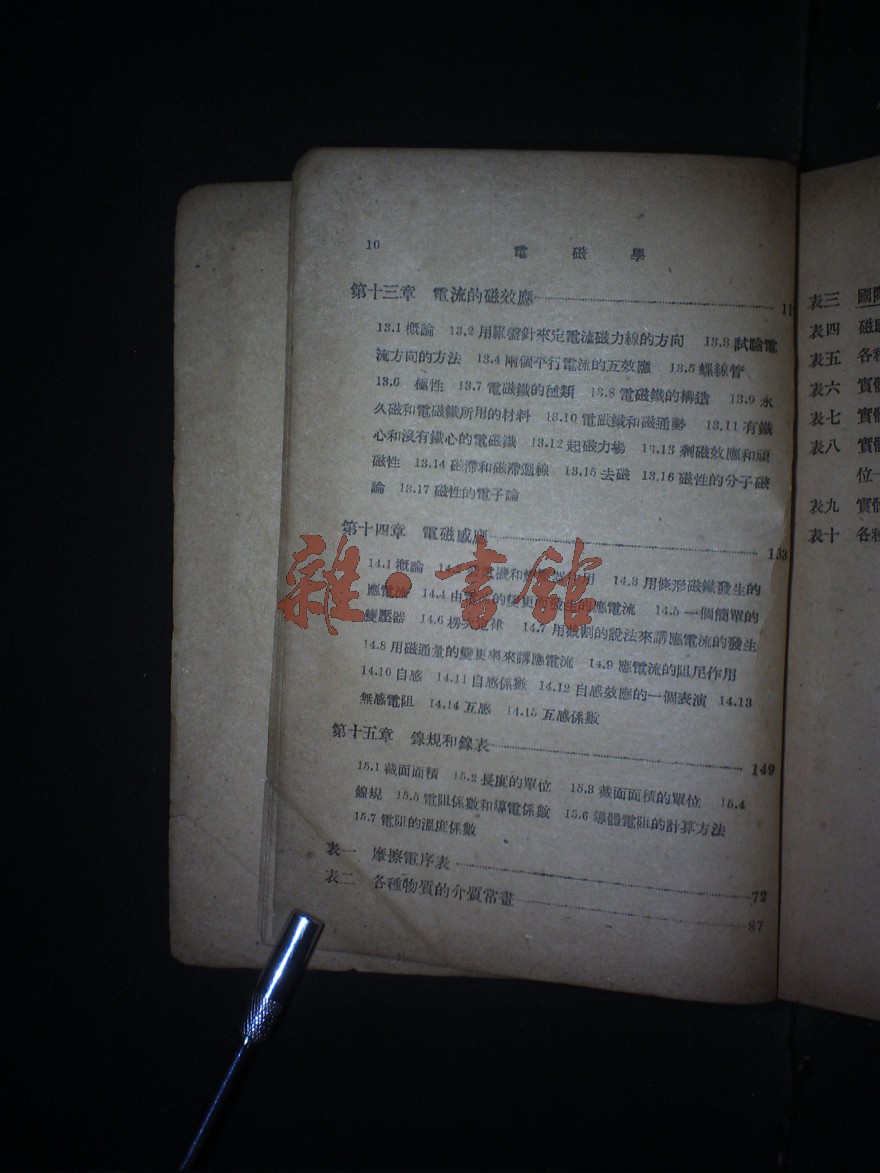 10 電磁學
第十三章 電流的磁效應 11
13.1 概論 13.2 用羅盤針來定電流磁力線的方向 13.3 試驗電
流方向的方法 13.4 兩個平行電流的互效應 13.5 螺線管
13.6 極性 13.7 電磁鐵的種類 13.8 電磁鐵的構造 13.9 永
久磁和電磁鐵所用的材料 13.10 電磁鐵和磁通勢 13.11 有鐵
心和沒有鐵心的電磁鐵 13.12 起磁力場 13.13 剩磁效應和頑
磁性 13.14 磁滯和磁滯迴線 13.15 去磁 13.16 磁性的分子磁
論 13.17 磁性的電子論
第十四章 電磁感應 133
14.1 概論 機和 作用 14.3 用條形磁鐵發生的
應電流 14.4 由 的變更而發生的應電流 14.5 一個簡單的
變壓器 14.6 楞次定律 14.7 用截割的說法來講應電流的發生
14.8 用磁通量的變更率來講應電流 14.9 應電流的阻尼作用
14.10 自感 14.11 自感係數 14.12 自感效應的一個表演 14.13
無感電阻 14.14 互感 14.15 互感係數
第十五章 線規和線表 149
15.1 截面面積 15.2 長度的單位 15.3 截面面積的單位 15.4
線規 15.5 電阻係數和導電係數 15.6 導體電阻的計算方法
15.7 電阻的溫度係數
表一 摩擦電序表 72
表二 各種物質的介質常數 87
表三 國際
表四 磁
表五 各種
表六 實
表七 實
表八 實
位
表九 實
表十 各種
雜·書館